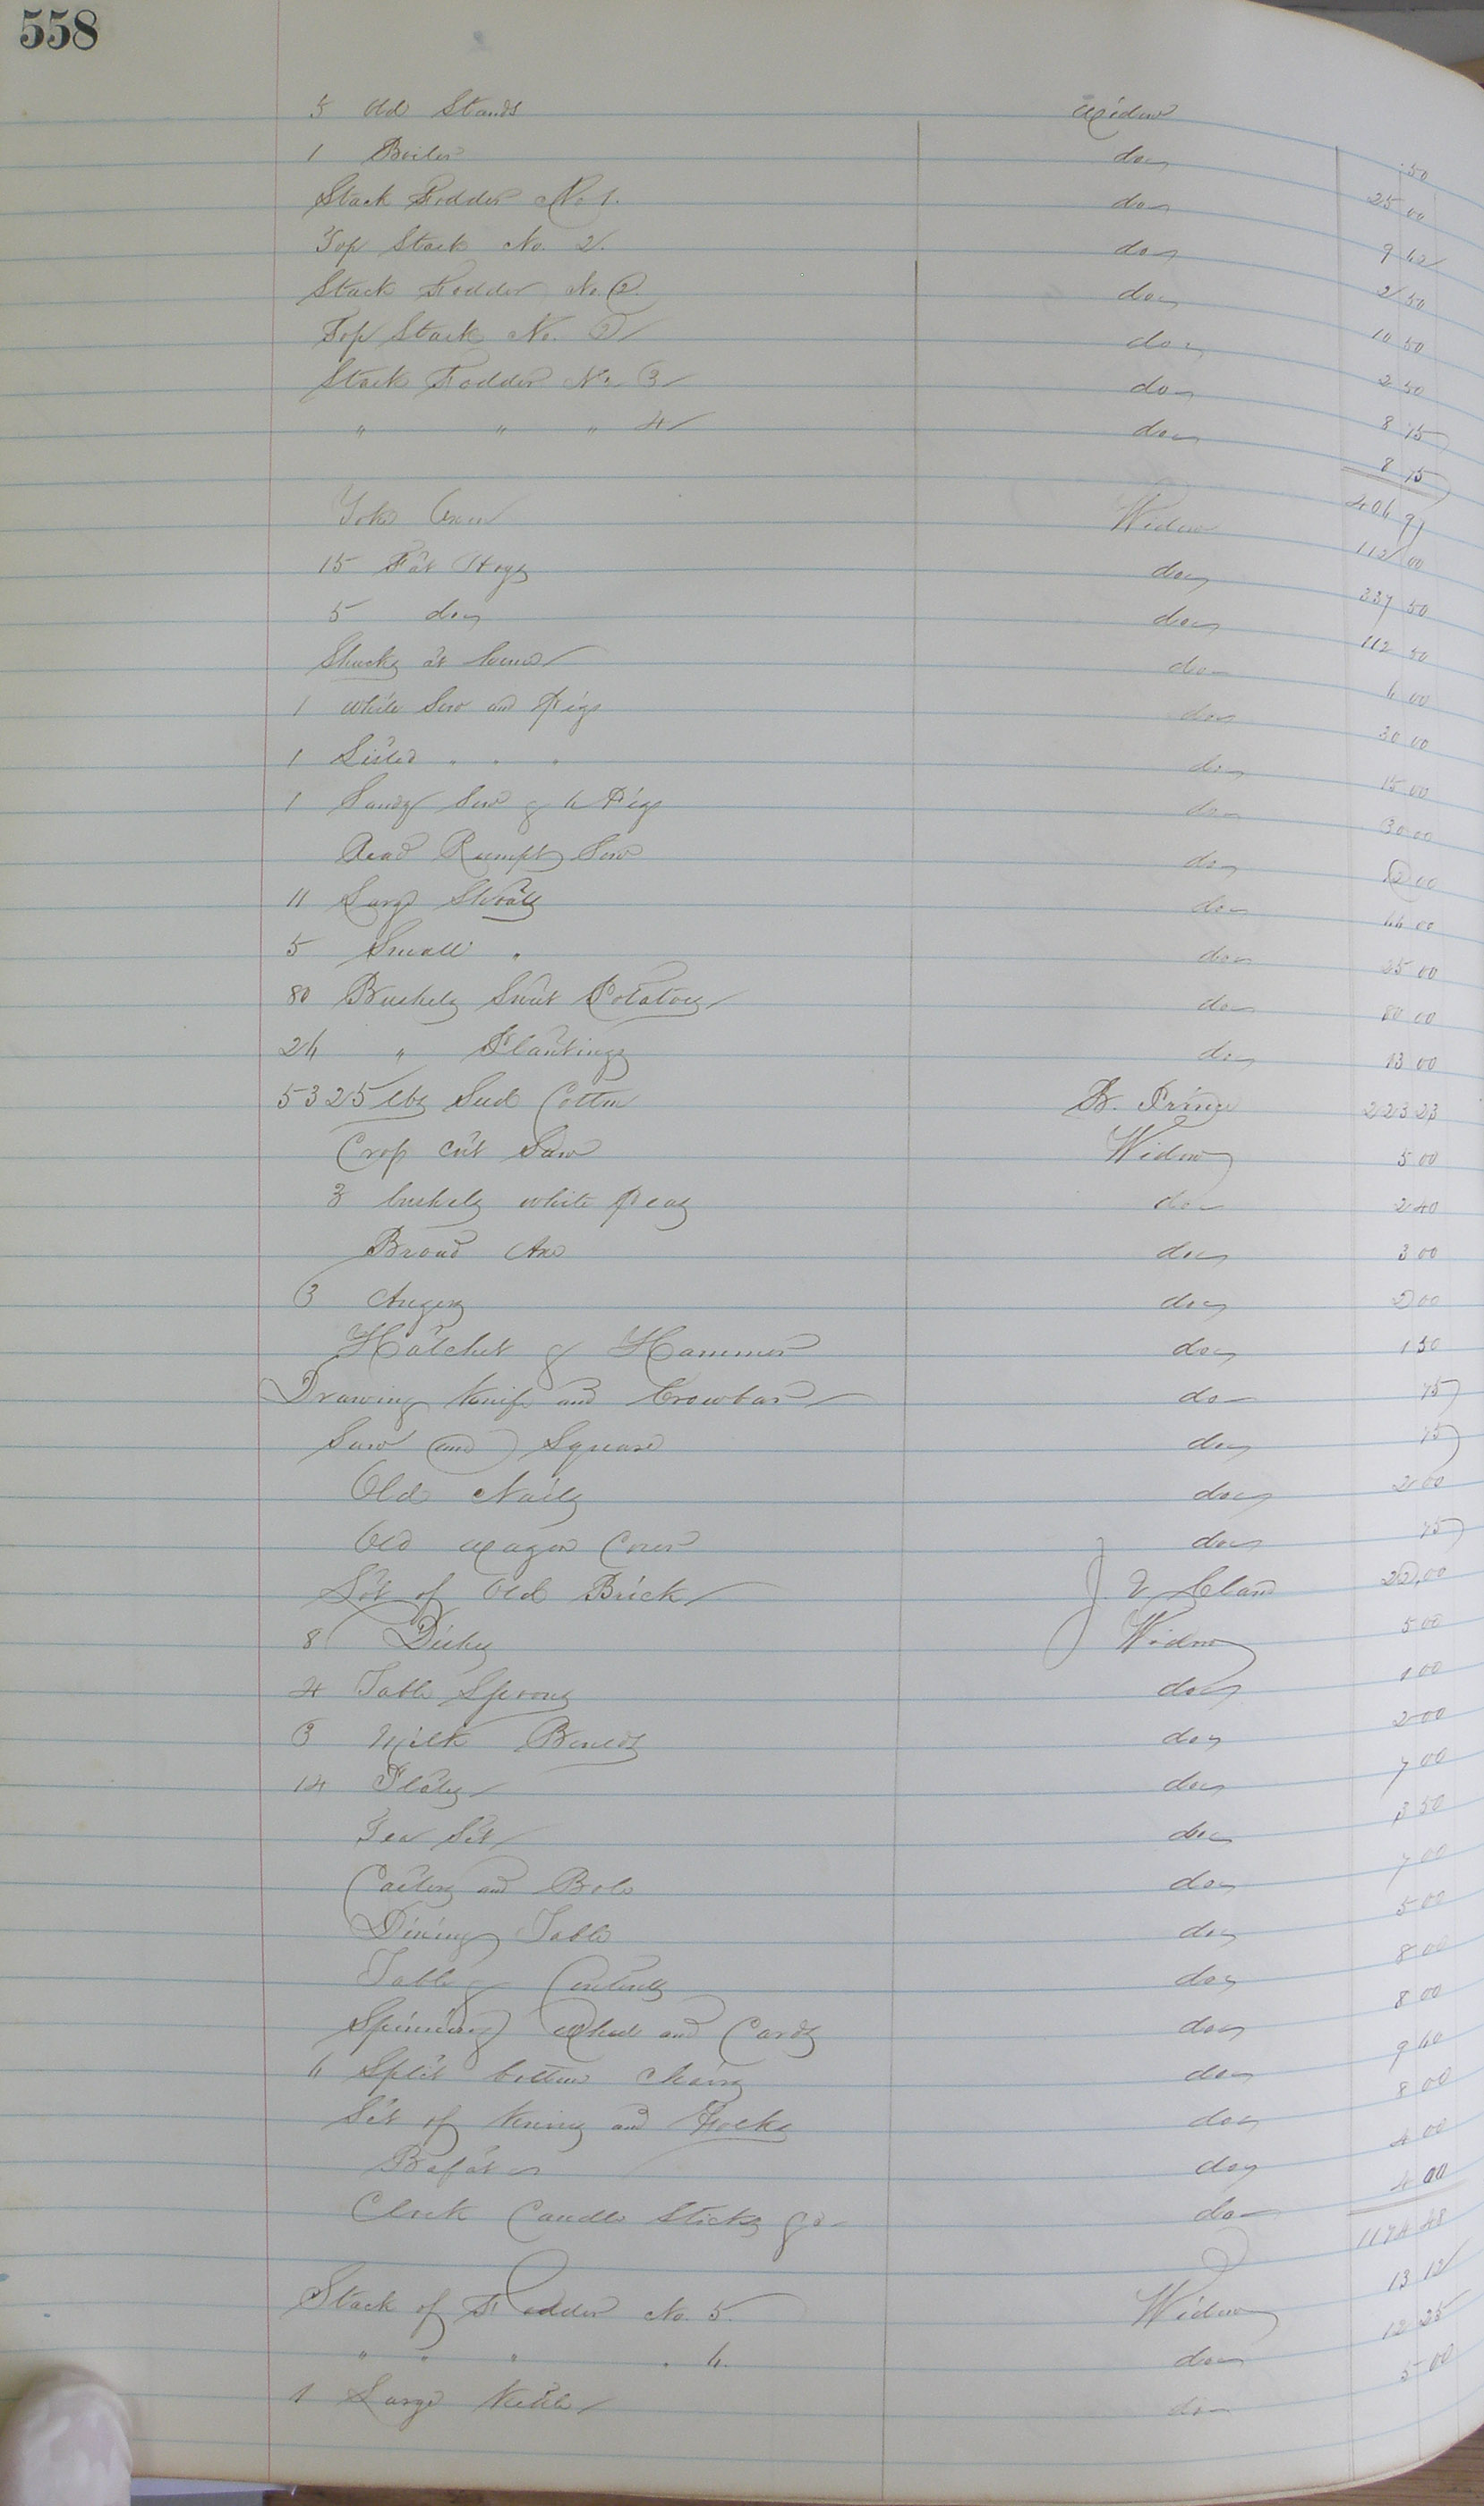 558
5 Old Stands Widow 50
1 Boiler do 25 00
Stack Fodder No 1. do 9 62
Top Stack No. 2. do 2 50
Stack Fodder No. 2. do 10 50
Top Stack No. 2 do 2 50
Stack Fodder No 3 do 8 75
" " " 4 do 8 75
406 91
Yoke Oxen Widow 112 00
15 Fat Hogs do 337 50
5 do do 112 50
Shucks at do 6 00
1 White Sow and Pigs do 30 00
1 Listed " " " do 15 00
1 Sandy Sow & 6 Pigs do 30 00
Read Rumpt Sow do 12 00
11 Large Shoats do 66 00
5 Small " do 25 00
80 Bushels Sweet Potatoes do 80 00
26 " Plantings do 13 00
5325 lbs Seed Cotton Prince 223 23
Crop cut Saw Widow 5 00
3 bushels white peas do 2 40
Broad Axe do 3 00
3 Augers do 2 00
Hatchet & Hammer do 1 50
Drawing Knife and Crowbar do 75
Saw and Square do 75
Old Nails do 2 00
Old Wagon Cover do 75
Lot of Old Brick J. 22,00
8 Dishes Widow 5 00
4 Table Spoons do 1 00
3 Milk Bowls do 2 00
14 Plates do 7 00
Tea Set do 3 50
and do 7 00
Dining Table do 5 00
Table & Contents do 8 00
Spinning Wheel and Cards do 8 00
6 Split bottom Chairs do 9 60
Set of Knives and Forks do 8 00
Bofat do 4 00
Clock Candle Sticks &c do 4 00
1174 48
Stack of Fodder No. 5. Widow 13 12
" " " " 6. do 12 25
1 Large Kettle do 5 00